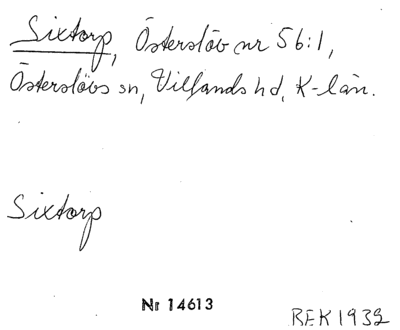 Sixtorp, Österslöv nr 56:1,
Österslövs sn, Villands hd, K-län.
Sixtorp
Nr 14613
REK 1932